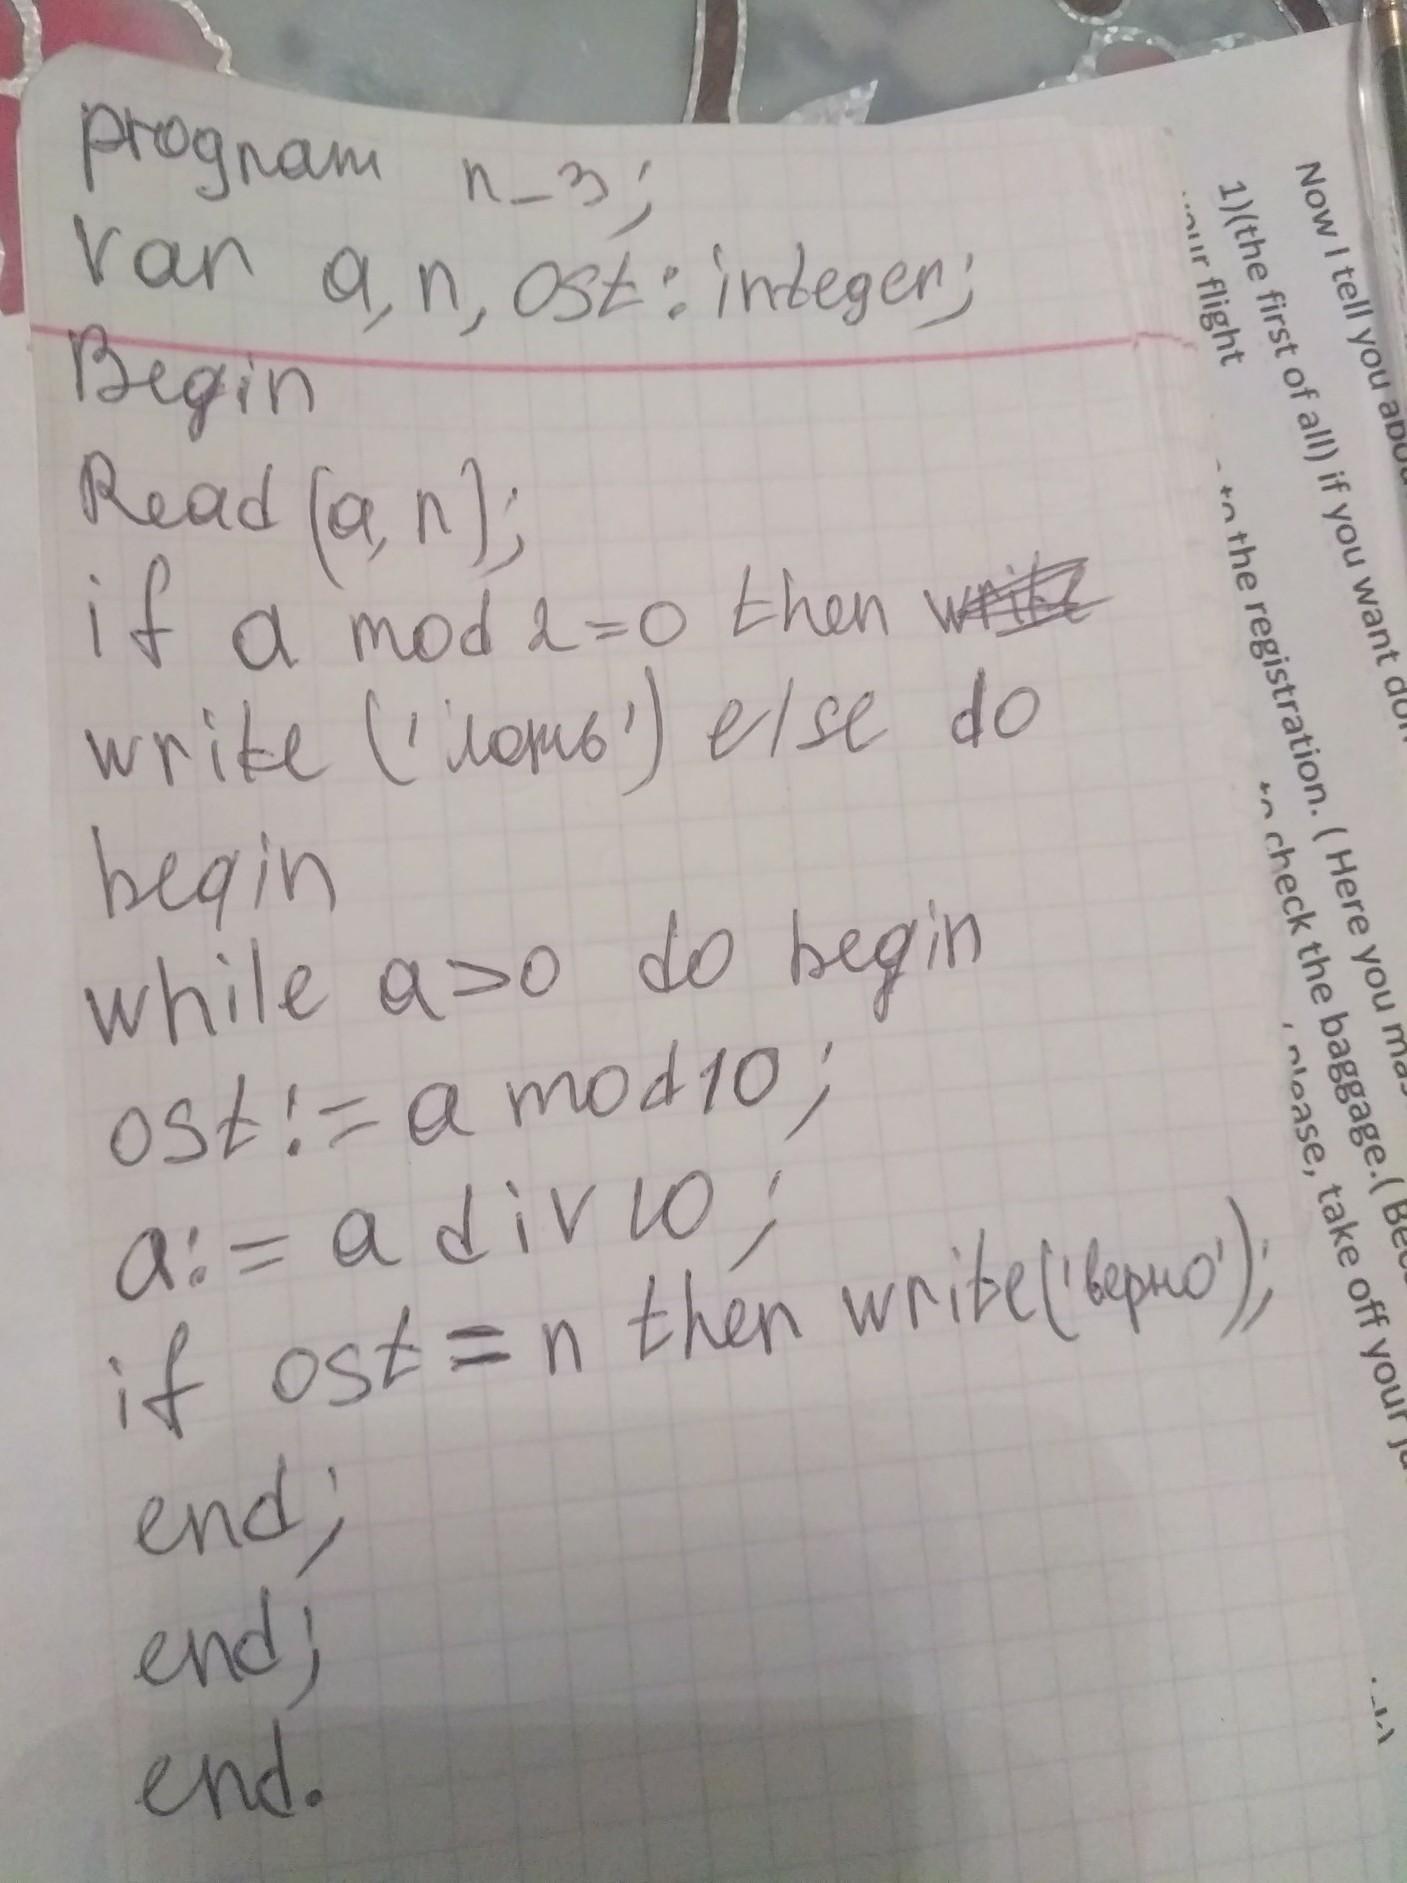 program n_3;
Var a, n, ost: integer;
Begin
Read (a, n);
if a mod 2=0 then
write ('ложь') else do
begin
while a>0 do begin
ost:= a mod 10;
a:= a div 10;
if ost = n then write('верно');
end;
end;
end.
Now I tell you
1)(the first of all) if you want
your flight
to the registration. ( Here you
to check the baggage.(
, please, take off your